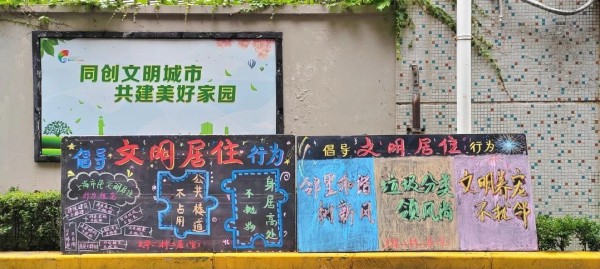 同创文明城市
共建美好家园
倡导 文明居住 行为
上海市民文明居住
行为规范
公共楼道
不占用
身居高处
不抛物
倡导 文明居住 行为
邻里和谐
树新风
垃圾分类
领风尚
文明养宠
不扰邻